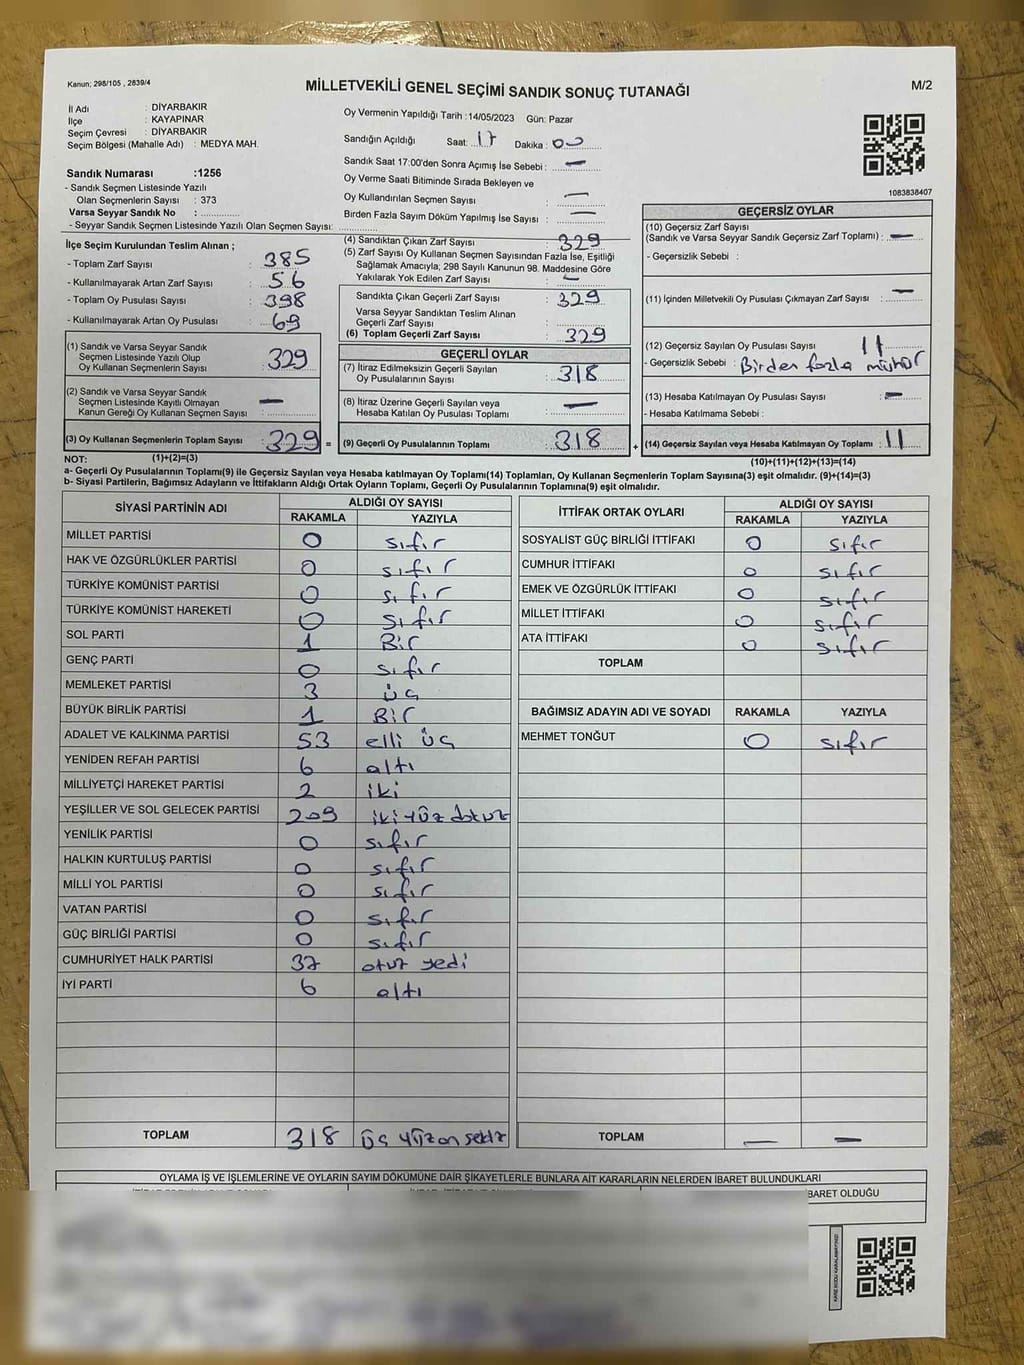 Kanun: 298/105 , 2839/4
MİLLETVEKİLİ GENEL SEÇİMİ SANDIK SONUÇ TUTANAĞI
M/2
İl Adı : DİYARBAKIR
İlçe : KAYAPINAR
Seçim Çevresi : DİYARBAKIR
Seçim Bölgesi (Mahalle Adı) : MEDYA MAH.
Sandık Numarası :1256
- Sandık Seçmen Listesinde Yazılı
Olan Seçmenlerin Sayısı : 373
Varsa Seyyar Sandık No :
- Seyyar Sandık Seçmen Listesinde Yazılı Olan Seçmen Sayısı:
Oy Vermenin Yapıldığı Tarih :14/05/2023 Gün: Pazar
Sandığın Açıldığı Saat: 17 Dakika : 00
Sandık Saat 17:00'den Sonra Açımış İse Sebebi : —
Oy Verme Saati Bitiminde Sırada Bekleyen ve
Oy Kullandırılan Seçmen Sayısı : —
Birden Fazla Sayım Döküm Yapılmış İse Sayısı : —
1083838407
İlçe Seçim Kurulundan Teslim Alınan ;
- Toplam Zarf Sayısı : 385
- Kullanılmayarak Artan Zarf Sayısı : 56
- Toplam Oy Pusulası Sayısı : 398
- Kullanılmayarak Artan Oy Pusulası : 69
(1) Sandık ve Varsa Seyyar Sandık
Seçmen Listesinde Yazılı Olup
Oy Kullanan Seçmenlerin Sayısı : 329
(2) Sandık ve Varsa Seyyar Sandık
Seçmen Listesinde Kayıtlı Olmayan
Kanun Gereği Oy Kullanan Seçmen Sayısı : —
(3) Oy Kullanan Seçmenlerin Toplam Sayısı : 329 =
(4) Sandıktan Çıkan Zarf Sayısı : 329
(5) Zarf Sayısı Oy Kullanan Seçmen Sayısından Fazla İse, Eşitliği
Sağlamak Amacıyla; 298 Sayılı Kanunun 98. Maddesine Göre
Yakılarak Yok Edilen Zarf Sayısı : —
Sandıkta Çıkan Geçerli Zarf Sayısı : 329
Varsa Seyyar Sandıktan Teslim Alınan
Geçerli Zarf Sayısı :
(6) Toplam Geçerli Zarf Sayısı : 329
GEÇERLİ OYLAR
(7) İtiraz Edilmeksizin Geçerli Sayılan
Oy Pusulalarının Sayısı : 318
(8) İtiraz Üzerine Geçerli Sayılan veya
Hesaba Katılan Oy Pusulası Toplamı : —
(9) Geçerli Oy Pusulalarının Toplamı : 318 +
GEÇERSİZ OYLAR
(10) Geçersiz Zarf Sayısı
(Sandık ve Varsa Seyyar Sandık Geçersiz Zarf Toplamı) : —
- Geçersizlik Sebebi :
(11) İçinden Milletvekili Oy Pusulası Çıkmayan Zarf Sayısı : —
(12) Geçersiz Sayılan Oy Pusulası Sayısı : 11
- Geçersizlik Sebebi : Birden fazla mühür
(13) Hesaba Katılmayan Oy Pusulası Sayısı : —
- Hesaba Katılmama Sebebi :
(14) Geçersiz Sayılan veya Hesaba Katılmayan Oy Toplamı : 11
NOT: (1)+(2)=(3)
(10)+(11)+(12)+(13)=(14)
a- Geçerli Oy Pusulalarının Toplamı(9) ile Geçersiz Sayılan veya Hesaba katılmayan Oy Toplamı(14) Toplamları, Oy Kullanan Seçmenlerin Toplam Sayısına(3) eşit olmalıdır. (9)+(14)=(3)
b- Siyasi Partilerin, Bağımsız Adayların ve İttifakların Aldığı Ortak Oyların Toplamı, Geçerli Oy Pusulalarının Toplamına(9) eşit olmalıdır.
SİYASİ PARTİNİN ADI ALDIĞI OY SAYISI
RAKAMLA YAZIYLA
MİLLET PARTİSİ 0 sıfır
HAK VE ÖZGÜRLÜKLER PARTİSİ 0 sıfır
TÜRKİYE KOMÜNİST PARTİSİ 0 sıfır
TÜRKİYE KOMÜNİST HAREKETİ 0 sıfır
SOL PARTİ 1 Bir
GENÇ PARTİ 0 sıfır
MEMLEKET PARTİSİ 3 üç
BÜYÜK BİRLİK PARTİSİ 1 Bir
ADALET VE KALKINMA PARTİSİ 53 elli üç
YENİDEN REFAH PARTİSİ 6 altı
MİLLİYETÇİ HAREKET PARTİSİ 2 iki
YEŞİLLER VE SOL GELECEK PARTİSİ 209 iki yüz dokuz
YENİLİK PARTİSİ 0 sıfır
HALKIN KURTULUŞ PARTİSİ 0 sıfır
MİLLİ YOL PARTİSİ 0 sıfır
VATAN PARTİSİ 0 sıfır
GÜÇ BİRLİĞİ PARTİSİ 0 sıfır
CUMHURİYET HALK PARTİSİ 37 otuz yedi
İYİ PARTİ 6 altı
TOPLAM 318 üç yüz on sekiz
İTTİFAK ORTAK OYLARI ALDIĞI OY SAYISI
RAKAMLA YAZIYLA
SOSYALİST GÜÇ BİRLİĞİ İTTİFAKI 0 sıfır
CUMHUR İTTİFAKI 0 sıfır
EMEK VE ÖZGÜRLÜK İTTİFAKI 0 sıfır
MİLLET İTTİFAKI 0 sıfır
ATA İTTİFAKI 0 sıfır
TOPLAM
BAĞIMSIZ ADAYIN ADI VE SOYADI RAKAMLA YAZIYLA
MEHMET TONĞUT 0 sıfır
TOPLAM — —
OYLAMA İŞ VE İŞLEMLERİNE VE OYLARIN SAYIM DÖKÜMÜNE DAİR ŞİKAYETLERLE BUNLARA AİT KARARLARIN NELERDEN İBARET BULUNDUKLARI
BARET OLDUĞU